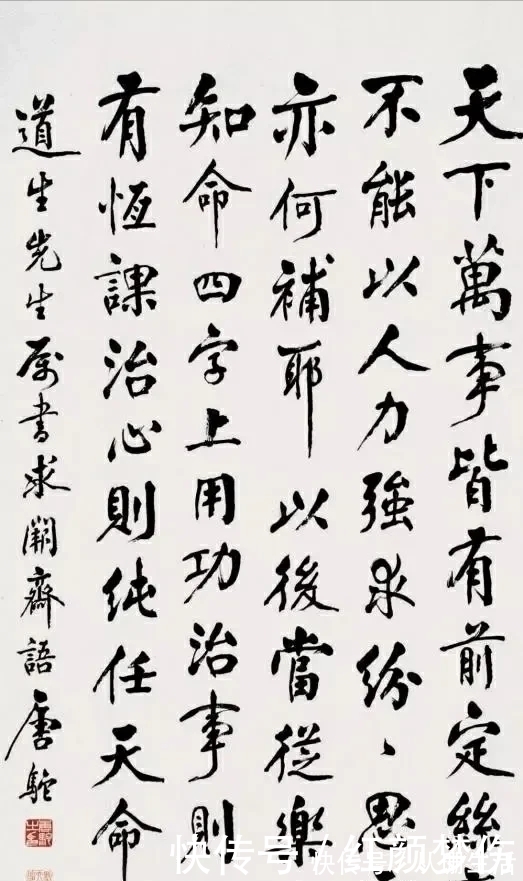 天下萬事皆有前定絲
不能以人力強求紛〻思
亦何補耶以後當從樂
知命四字上用功治事則
有恆課治心則純任天命
道生先生屬書求闕齋語唐駝
快传号